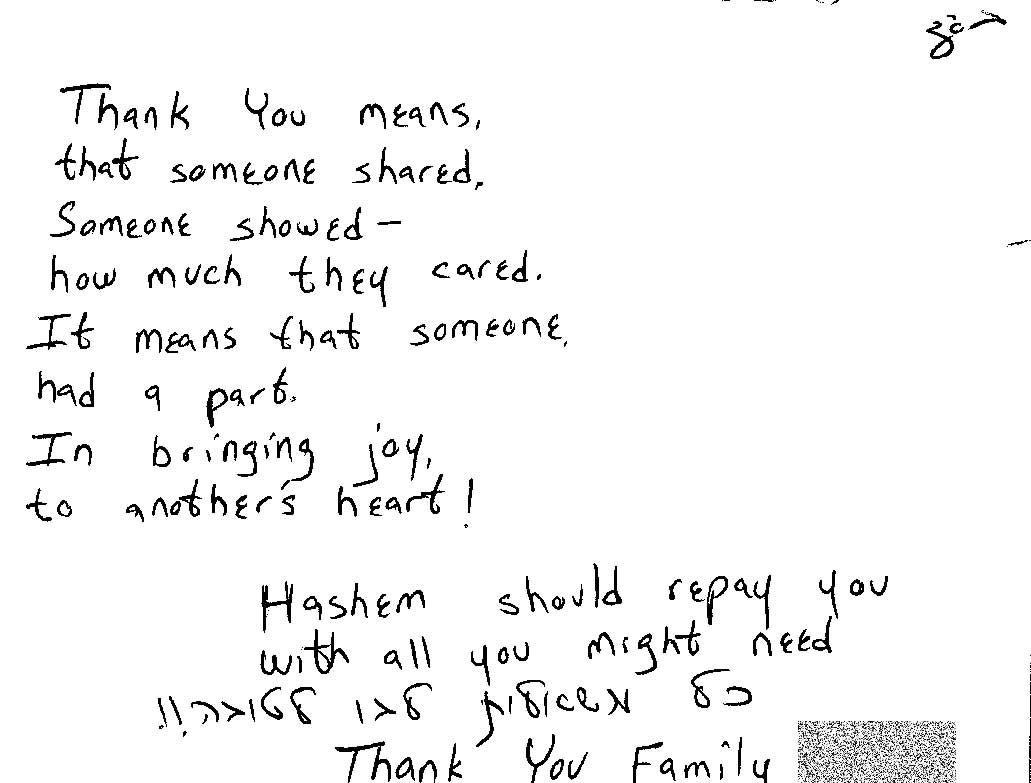 בס"ד
Thank You means,
that someone shared,
Someone showed –
how much they cared.
It means that someone,
had a part.
In bringing joy,
to another's heart!
Hashem should repay you
with all you might need
כל משאלות לבו לטובה!!
Thank You Family